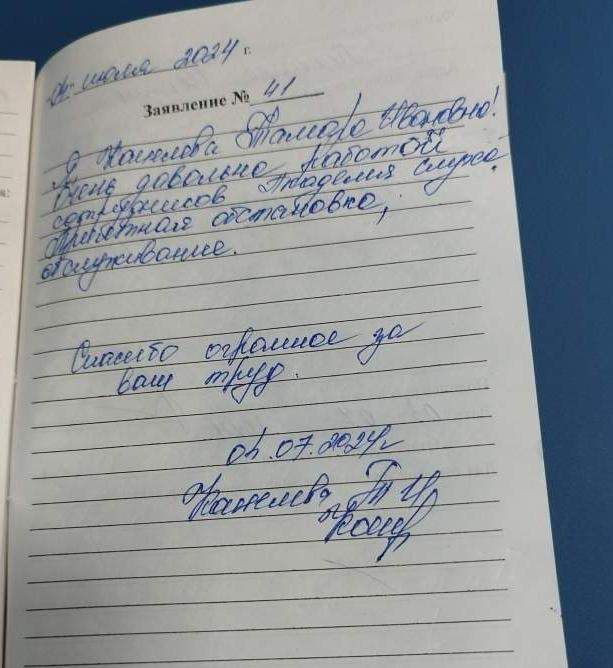 04 июля 2024 г.
Заявление № 41
Я Тамара Ивановна!
Очень довольна работой
сотрудников Академия слуха.
Приятная обстановка,
обслуживание.
Спасибо огромное за
ваш труд.
04.07.2024г
Т И